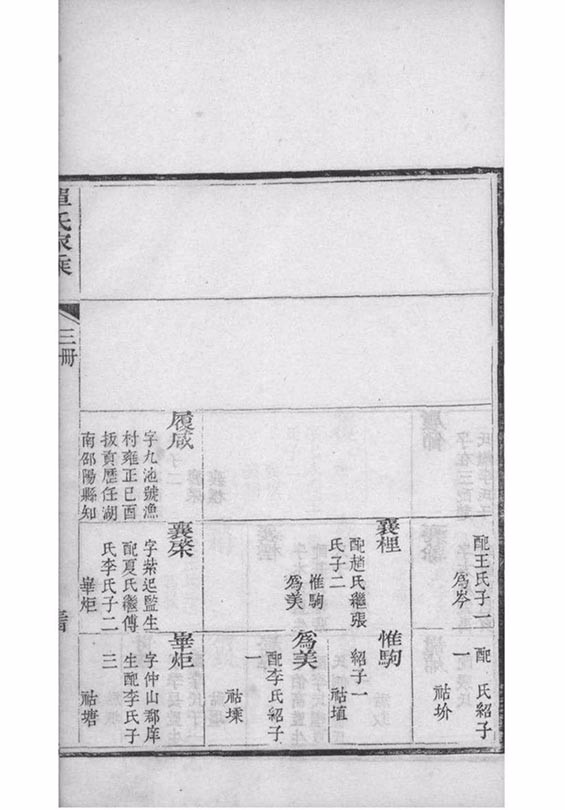 配王氏子一
爲岑
配　氏紹子
一
祜圿
襄裡
配趙氏繼張
氏子二
惟駒
爲美
惟駒
紹子一
祜埴
爲美
配李氏紹子
祜塖
履咸
字九池號漁
村雍正己酉
拔貢歷任湖
南邵陽縣知
襄棨
字紫迟監生
配夏氏繼傅
氏李氏子二
畢炬
畢炬
字仲山郡庠
生配李氏子
三
祜塘
單氏家乘
三冊